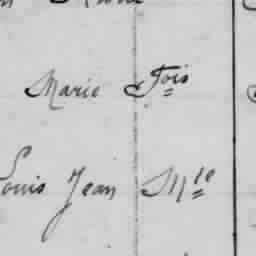 Marie Fois
Louis Jean Mie